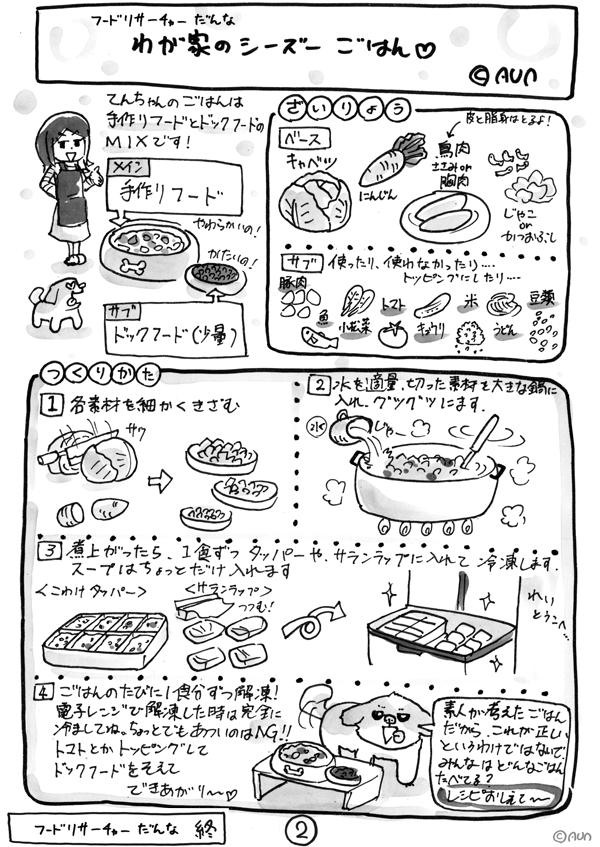 フードリサーチャー だんな
わが家のシーズー ごはん♡
©AUA
てんちゃんのごはんは
手作りフードとドックフードの
MIXです!
メイン
手作りフード
やわらかいの!
かたいの!
サブ
ドックフード(少量)
ざいりょう
ベース
キャベツ
にんじん
皮と脂身はとるよ!
鳥肉
ささみor
胸肉
じゃこ
or
かつおぶし
サブ 使ったり、使わなかったり....
トッピングにしたり....
豚肉
魚
小松菜
トマト
キュウリ
米
うどん
豆類
つくりかた
1 各素材を細かくきざむ
サク
2 水を適量、切った素材を大きな鍋に
入れ、グツグツにます.
水
じゃー
3 煮上がったら、1食ずつ タッパーや、サランラップに入れて 冷凍します.
スープはちょっとだけ入れます
<こわけタッパー>
<サランラップ>
つつむ!
れい
とうこへ...
4 ごはんのたびに1食分ずつ解凍!
電子レンジで解凍した時は完全に
冷ましてね。ちょっとでもあついのはNG!!
トマトとか トッピングして
ドックフードをそえて
できあがり〜♡
素人が考えたごはん
だから、これが正しい
というわけではないで
みんなはどんなごはん
たべてる?
レシピおしえて〜
フードリサーチャー だんな 終
2
©AUA